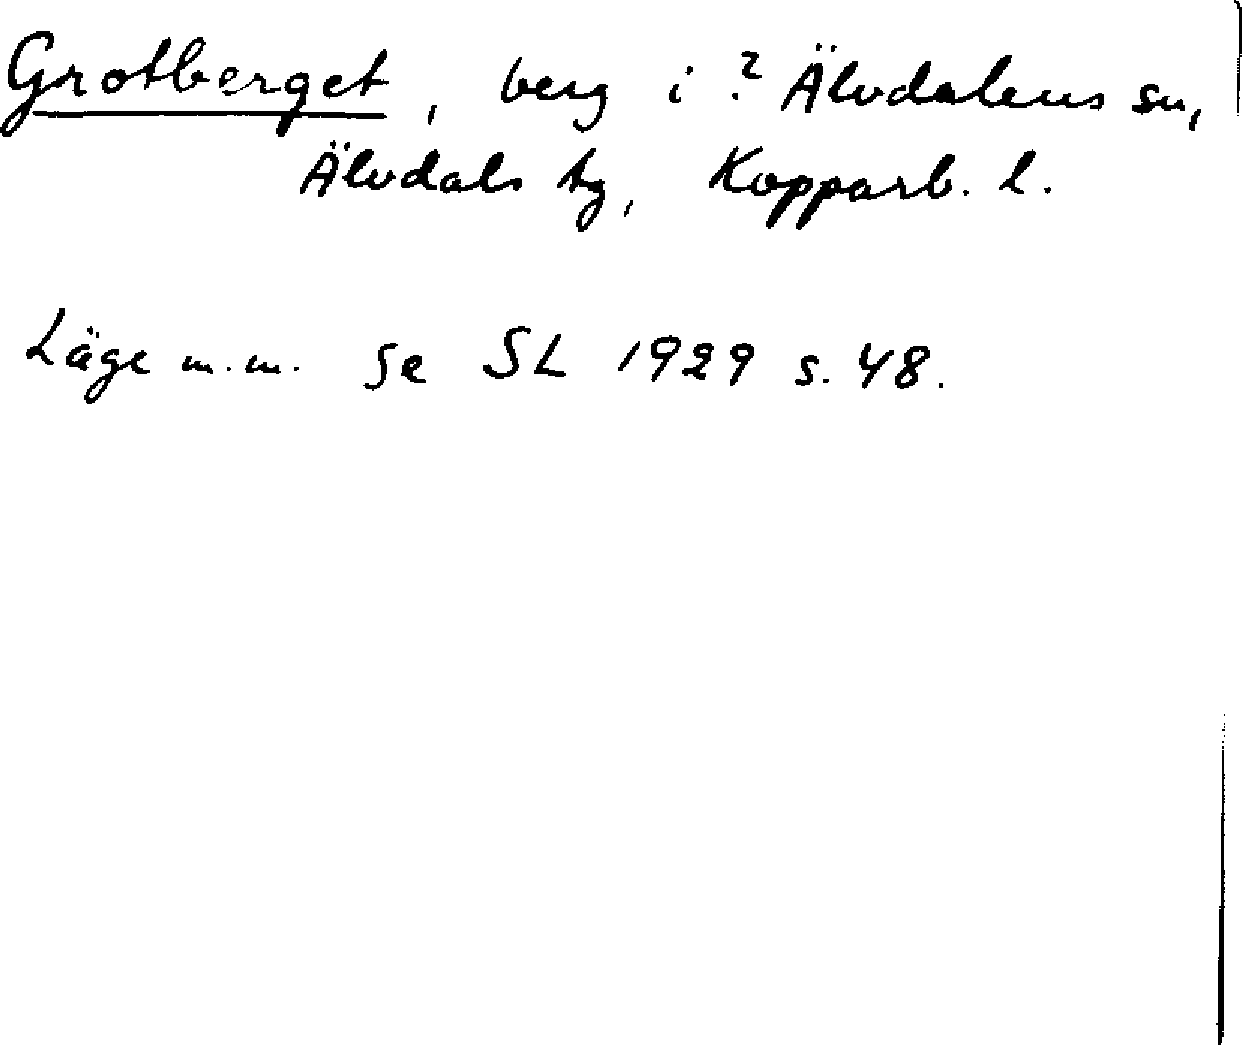 Grotberget, berg i ? Älvdalens sn,
Älvdals tg, Kopparb. l.
Läge m.m. se SL 1929 s. 48.